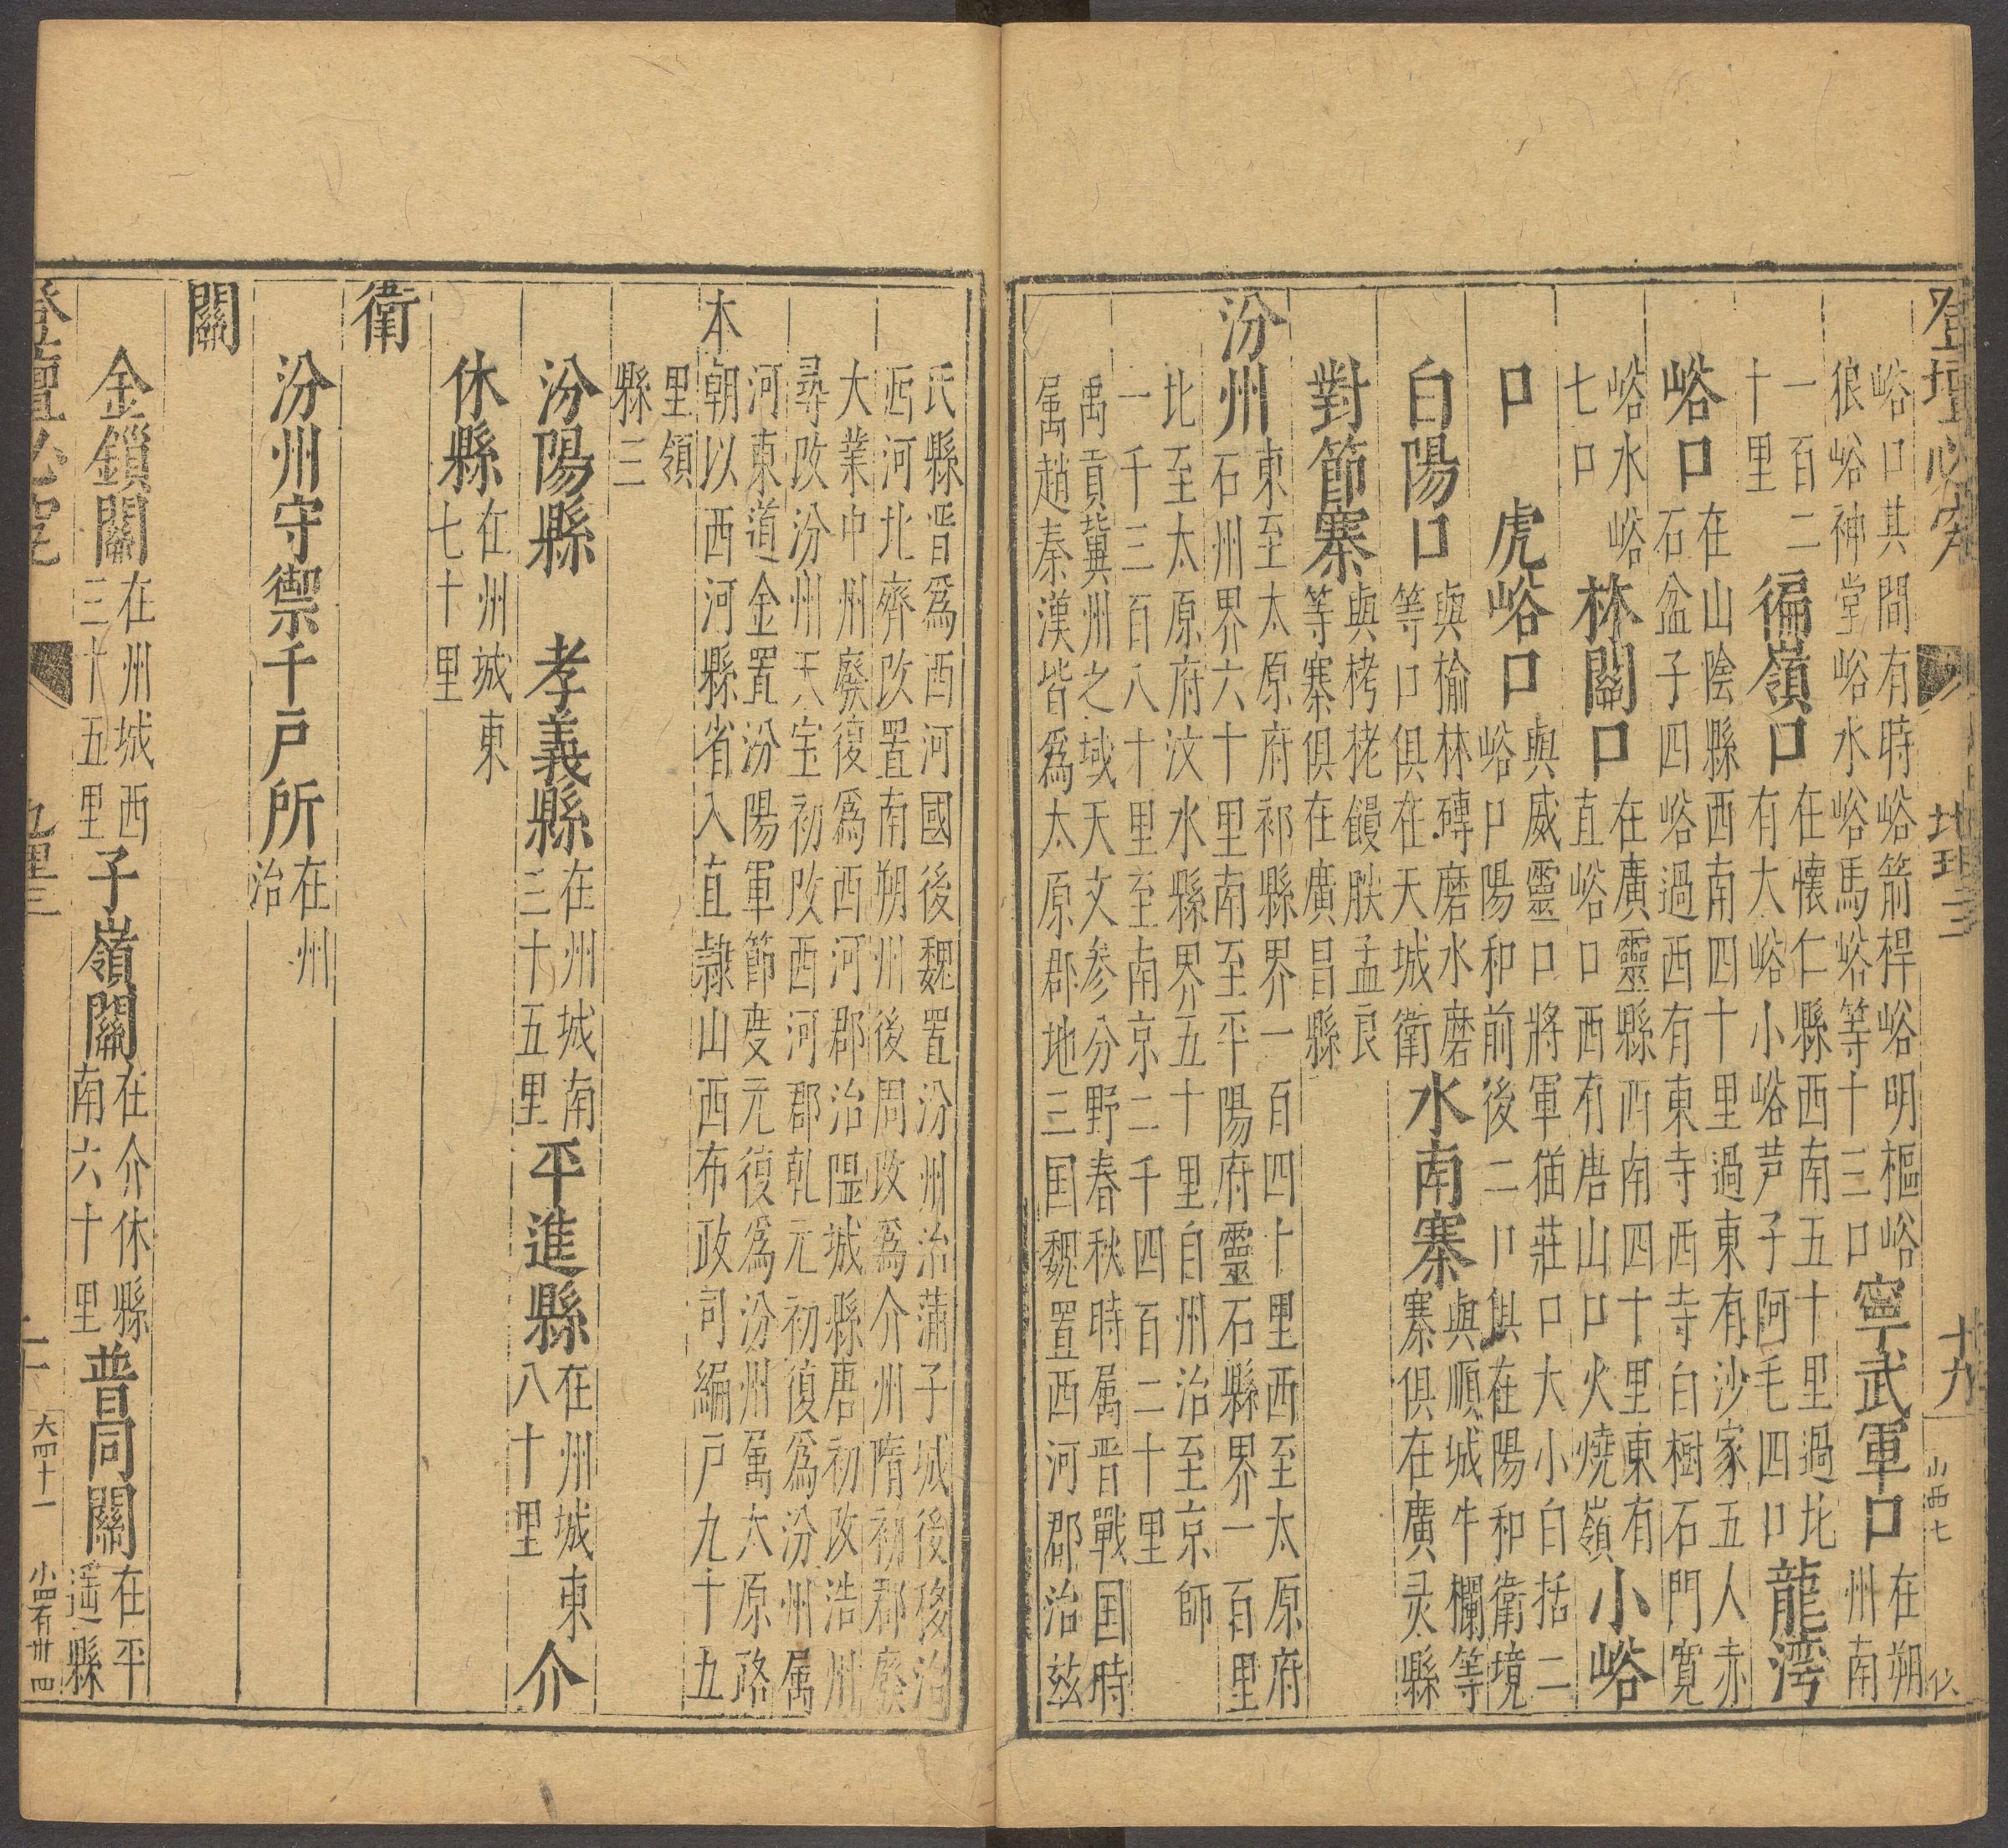 登壇必究 地理三 十九 山西七
峪口其間有時峪箭桿峪明樞峪
狼峪神堂峪水峪馬峪等十三口寧武軍口在朔
州南
一百二
十里徧嶺口在懷仁縣西南五十里過北
有大峪小峪芦子阿毛四口龍灣
峪口在山陰縣西南四十里過東有沙家五人赤
石盆子四峪過西有東寺西寺白樹石門寬
峪水峪
七口林關口在廣靈縣西南四十里東有
直峪口西有唐山口火燒嶺小峪
口 虎峪口與威靈口將軍猶莊口大小白括二
峪口陽和前後二口俱在陽和衛境
白陽口與榆林磚磨水磨
等口俱在天城衛水南寨與順城牛欄等
寨俱在廣灵縣
對節寨與栲栳饅肷孟良
等寨俱在廣昌縣
汾州東至太原府祁縣界一百四十里西至太原府
石州界六十里南至平陽府靈石縣界一百里
北至太原府汶水縣界五十里自州治至京師
一千三百八十里至南京二千四百二十里
禹貢冀州之域天文參分野春秋時属晋戰国時
属趙秦漢皆爲太原郡地三国魏置西河郡治兹
氏縣晋爲西河國後魏置汾州治蒲子城後移治
西河北齊改置南朔州後周改爲介州隋初郡廢
大業中州廢復爲西河郡治隰城縣唐初改浩州
尋改汾州天宝初改西河郡乾元初復爲汾州属
河東道金置汾陽軍節度元復爲汾州属太原路
本朝以西河縣省入直隸山西布政司編户九十五
里領
縣三
汾陽縣 孝義縣在州城南
三十五里平進縣在州城東
八十里介
休縣在州城東
七十里
衛
汾州守禦千戸所在州
治
關
金鎖關在州城西
三十五里子嶺關在介休縣
南六十里普同關在平
遥縣
登壇必究 地理三 二十 大四十一 小四百卅四